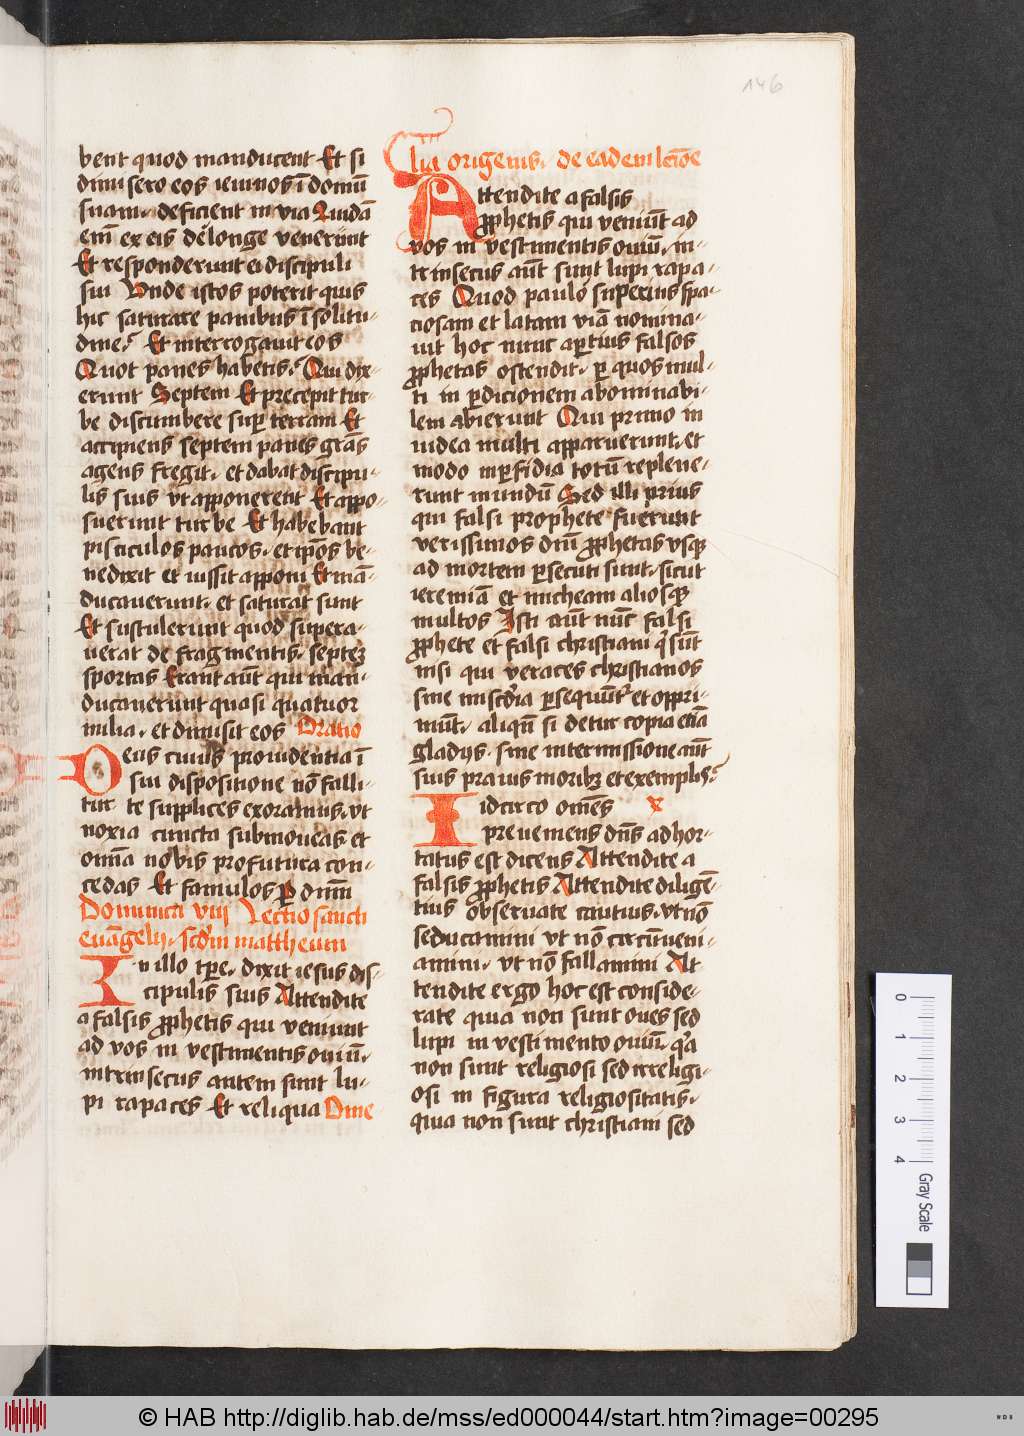 146
bent quod manducent Et si
dimisero eos ieiunos ī domū
suam, deficient in via Quidā
em̄ ex eis de longe venerunt
Et responderunt ei discipuli
sui Unde istos poterit quis
hic saturare panibus ī solitu-
dine? Et interrogauit eos
Quot panes habetis? Qui dix-
erunt Septem Et precepit tur-
be discumbere sup̄ terram Et
accipiens septem panes grās
agens fregit, et dabat discipu-
lis suis vt apponerent Et appo-
suerunt turbe Et habebant
pisciculos paucos, et ip̄os be-
nedixit et iussit apponi Et mā-
ducauerunt, et saturat sunt
Et sustulerunt quod supera-
uerat de fragmentis, septeʒ
sportas Erant aūt qui man-
ducauerunt quasi quatuor
milia, et dimisit eos Oratio
Deus cuius prouidentia ī
sui dispositione nō falli-
tur te supplices exoramus, vt
noxia cuncta submoueas, et
om̄a nobis profutura con-
cedas Et famulos p̄ dn̄m
Dominica viij Lectio sancti
euāgelij, scd̄m mattheum
In illo tp̄e, dixit iesus dis-
cipulis suis Attendite
a falsis ꝓphetis qui veniunt
ad vos in vestimentis ouiū,
intrinsecus autem sunt lu-
pi rapaces Et reliqua Ome-
lia origenis, de eadem lectōe
Attendite a falsis
ꝓphetis qui veniūt ad
vos in vestimentis ouiū, in-
trinsecus aūt sunt lupi rapa-
ces Quod paulo superius spa-
ciosam et latam viā nomina-
uit hoc nunc ap̄tius falsos
ꝓphetas ostendit, p̄ quos mul-
ti in p̄dicionem abominabi-
lem abierunt Qui primo in
iudea multi apparuerunt, et
modo inp̄fidia totū repleue-
runt mundū Sed illi prius
qui falsi prophete fuerunt
verissimos dn̄i ꝓphetas vsqꝫ
ad mortem p̄secuti sunt, sicut
ieremiā et micheam aliosqꝫ
multos Isti aūt nūc falsi
ꝓphete et falsi christiani q̄ sūt
nisi qui veraces christianos
sine mīscd̄ia p̄sequūt̄ et oppri-
mūt, aliqn̄ si detur copia etiā
gladijs, sine intermissione aūt
suis prauis moribꝫ et exemplis?
Idcirco om̄es
preuemens dn̄s adhor-
tatus est dicens Attendite a
falsis ꝓphetis Attendite diligē-
tius obseruate cautius, vt nō
seducamini vt nō circūueni-
amini, vt nō fallamini At-
tendite ergo hoc est conside-
rate quia non sunt oues sed
lupi in vestimento ouiū, q̄a
non sunt religiosi sed irreligi-
osi in figura religiositatis,
quia non sunt christiani sed
0 1 2 3 4
Gray Scale
© HAB http://diglib.hab.de/mss/ed000044/start.htm?image=00295